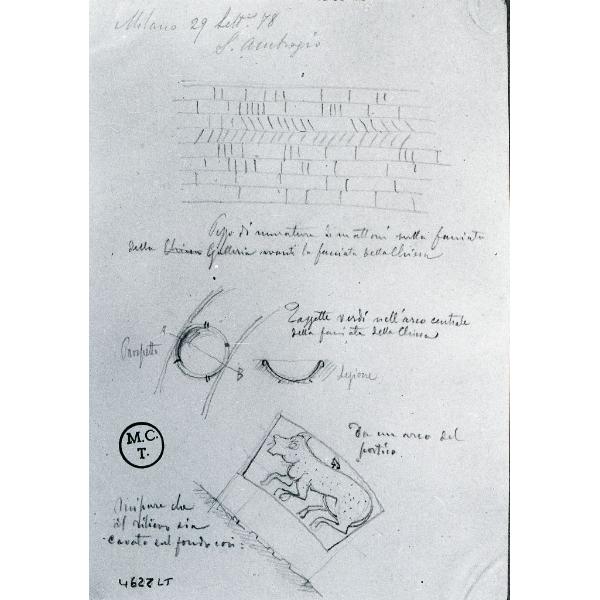 Milano 29 Sett. 78
S. Ambrogio
Pezzo di muratura in mattoni sulla facciata
della Chiesa Galleria avanti la facciata della Chiesa
Tazzette verdi nell'arco centrale
della facciata della Chiesa
Prospetto
Sezione
A
B
Da un arco del
portico
M.C.
T.
Mi pare che
il rilievo sia
cavato sul fondo così:
4622 LT